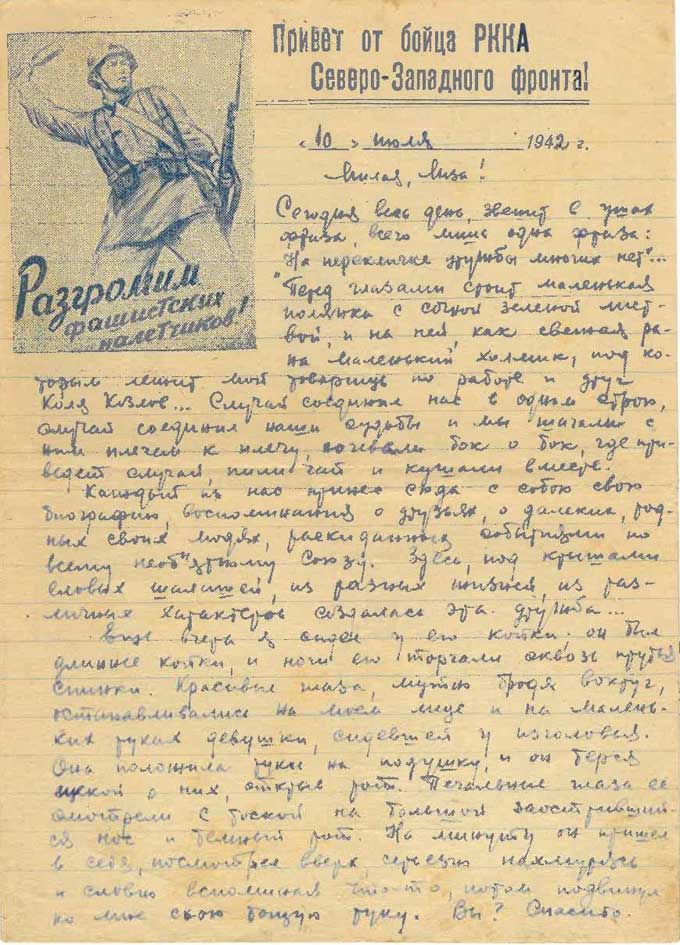 Привет от бойца РККА
Северо-Западного фронта!
Разгромим
фашистских
налетчиков!
«10» июля 1942 г.
Милая, Лиза!
Сегодня весь день, звенит в ушах
фраза, всего лишь одна фраза:
"На перекличке дружбы многих нет"...
Перед глазами стоит маленькая
полянка с сочной зеленой лист-
вой, и на ней, как свежая ра-
на маленький холмик, под ко-
торым лежит мой товарищ по работе и друг
Коля Козлов... Случай соединил нас в одном строю,
случай соединил наши судьбы и мы шагали с
ним плечем к плечу, ночевали бок о бок, где при-
ведет случай, пили чай и кушали вместе.
Каждый из нас принес сюда с собою свою
биографию, воспоминания о друзьях, о далеких, род-
ных своих людях, раскиданных событиями по
всему необ"ятному Союзу. Здесь, под крышами
еловых шалашей, из разных жизней, из раз-
личных характеров создалась эта дружба...
Еще вчера я сидел у его койки; он был
длиннее койки, и ноги его торчали сквозь прутья
спинки. Красивые глаза, мутно бродя вокруг,
останавливались на моем лице и на малень-
ких руках девушки, сидевшей у изголовья.
Она положила руки на подушку, и он терся
щекой о них, открыв рот. Печальные глаза ее
смотрели с тоской на большой заостривший-
ся нос и темный рот. На минуту он пришел
в себя, посмотрел вверх, серьезно нахмурясь
и словно вспоминая что-то, потом подвинул
ко мне свою тощую руку. Вы? Спасибо.